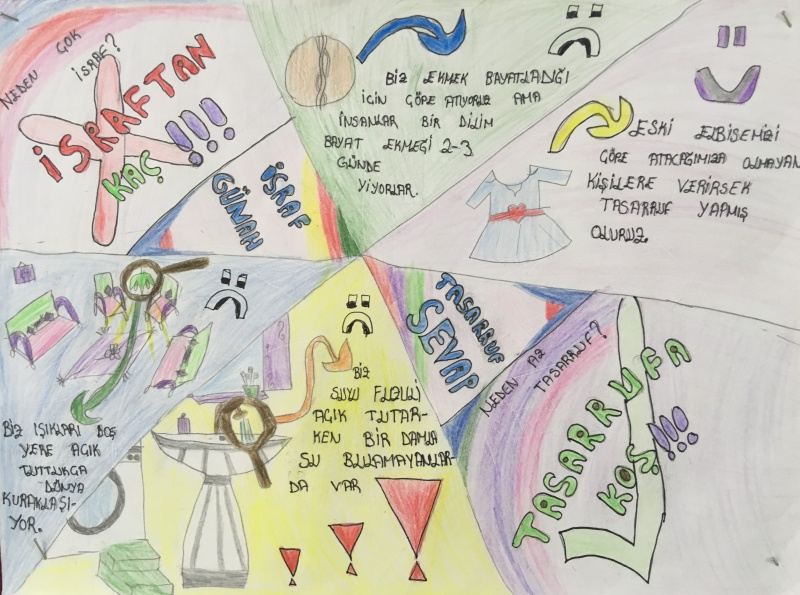 NEDEN ÇOK
İSRAF?
İSRAFTAN
KAÇ !!!
İSRAF
GÜNAH
BİZ EKMEK BAYATLADIĞI
İÇİN ÇÖPE ATIYORUZ AMA
İNSANLAR BİR DİLİM
BAYAT EKMEĞİ 2-3
GÜNDE
YİYORLAR.
ESKİ ELBİSEMİZİ
ÇÖPE ATACAĞIMIZA OLMAYAN
KİŞİLERE VERİRSEK
TASARRUF YAPMIŞ
OLURUZ.
BİZ IŞIKLARI BOŞ
YERE AÇIK
TUTTUKÇA
DÜNYA
KURAKLAŞI-
YOR.
BİZ
AÇIK TUTAR-
KEN BİR DAMLA
SU BULAMAYANLAR-
DA VAR
TASARRUF
SEVAP
NEDEN AZ
TASARRUF?
TASARRUFA
KOŞ !!!